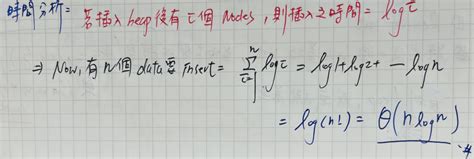 時間分析= 若插入 heap 後有 i 個 Nodes,則插入之時間= log i
⇒ Now,有 n 個 data 要 Insert= \sum_{i=1}^{n} log i = log1+log2+ -- log n
= log(n!) = Θ(n log n)
#